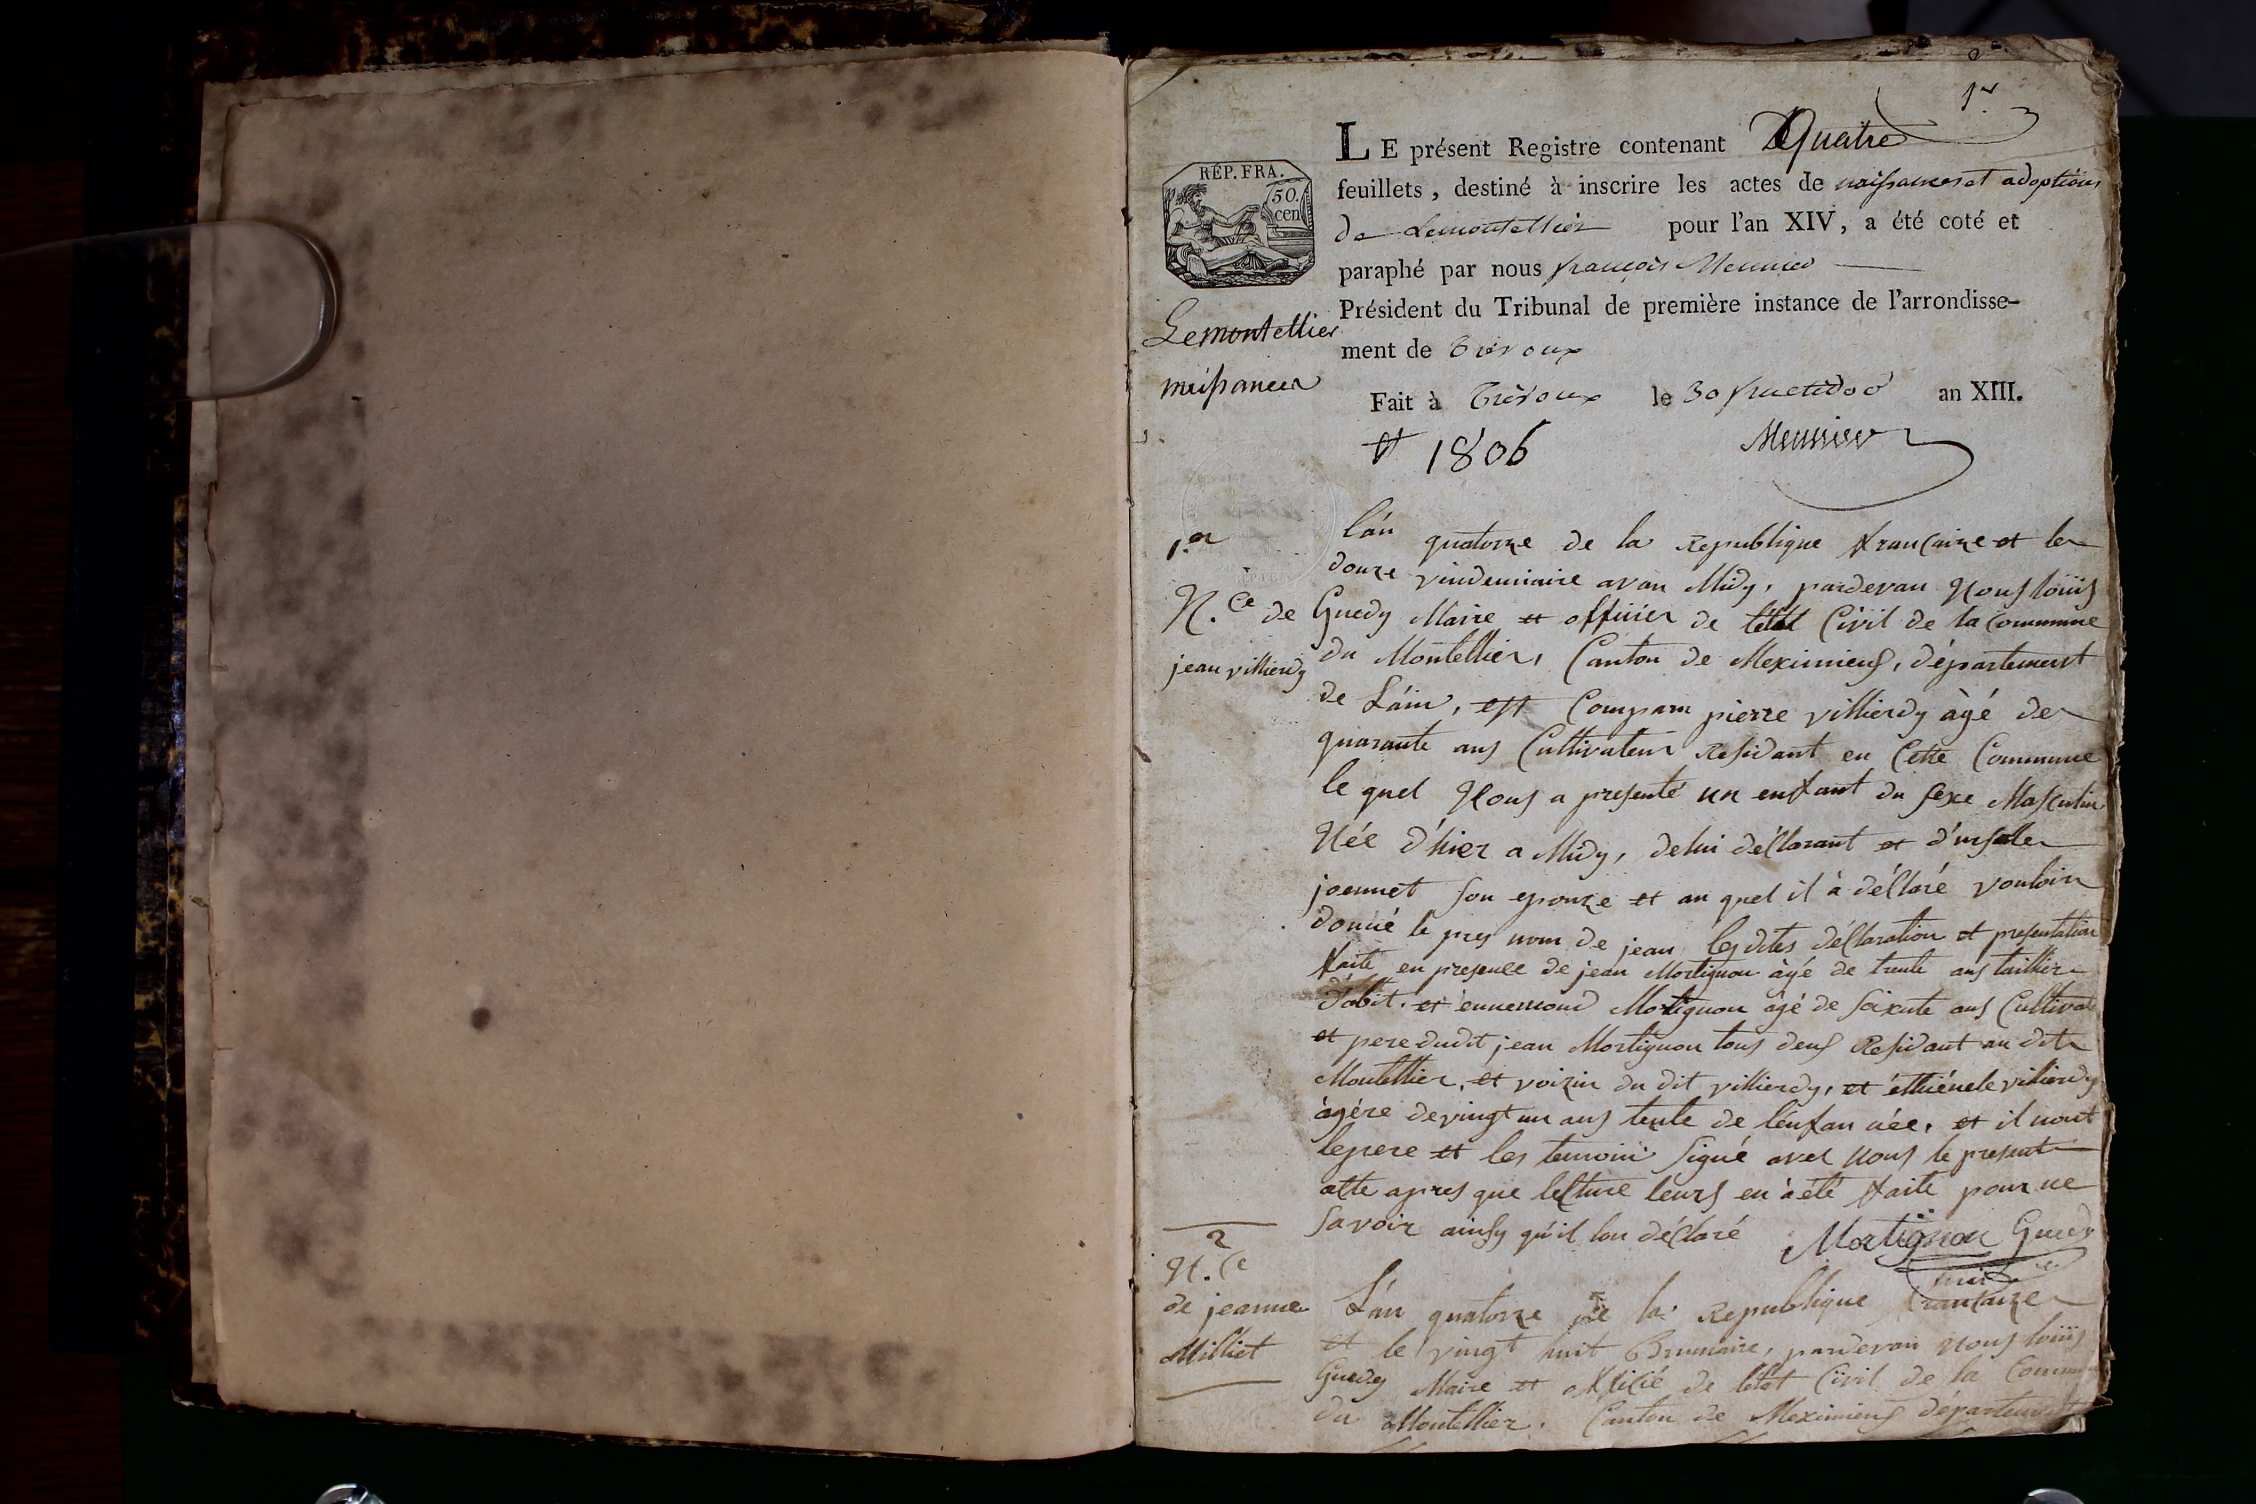 1er
LE présent Registre contenant Quatre
feuillets, destiné à inscrire les actes de naissances et adoptions
de Lemontellier pour l'an XIV, a été coté et
paraphé par nous françois Meunier
Président du Tribunal de première instance de l'arrondisse-
ment de Trévoux
Fait à Trévoux le 30 fructidor an XIII.
et 1806 Meunier
RÉP. FRA.
50.
cen
Lemontellier
naissances
1.er
N.ce de
jean villierdy
l'an quatorze de la Republique francaize et le
douze vindemiaire avan Midy, pardevan Nous loüis
Guedy Maire et officier de létat Civil de la Commune
du Montellier, Canton de Meximieus, département
de L'áin, est Comparu pierre villierdy àgé de
quarante ans Cultivateur Residant en Cette Commune
le quel Nous a presenté un enfant du sexe Masculin
Née d'hier a Midy, delui déclarant et d'ursule
joennet son epouze et au quel il à déclaré vouloir
donné le prey nom de jean les dites déclaration et presentation
faite en presence de jean Mortignon àgé de trente ans taillier
d'abit. et ennemond Mortignon àgé de soixente ans Cultivat
et pere dudit jean Mortignon tous deus Residant au dit
Montellier, et voizin du dit villierdy, et
àgére de vingt un ans tente de lenfan née, et il nont
lepere et les temoin signé avec nous le present
atte apres que lecture leurs en à été faite pour ne
savoir ainsy qu'il lon déclaré Mortignon Guedy
2
N.ce
de jeanne
Milliet
L'an quatorze de la Republique francaize
et le vingt huit Brumaire, pardevan nous loüis
Guedy Maire et officié de létat Civil de la Commune
du Montellier. Canton de Meximieus département